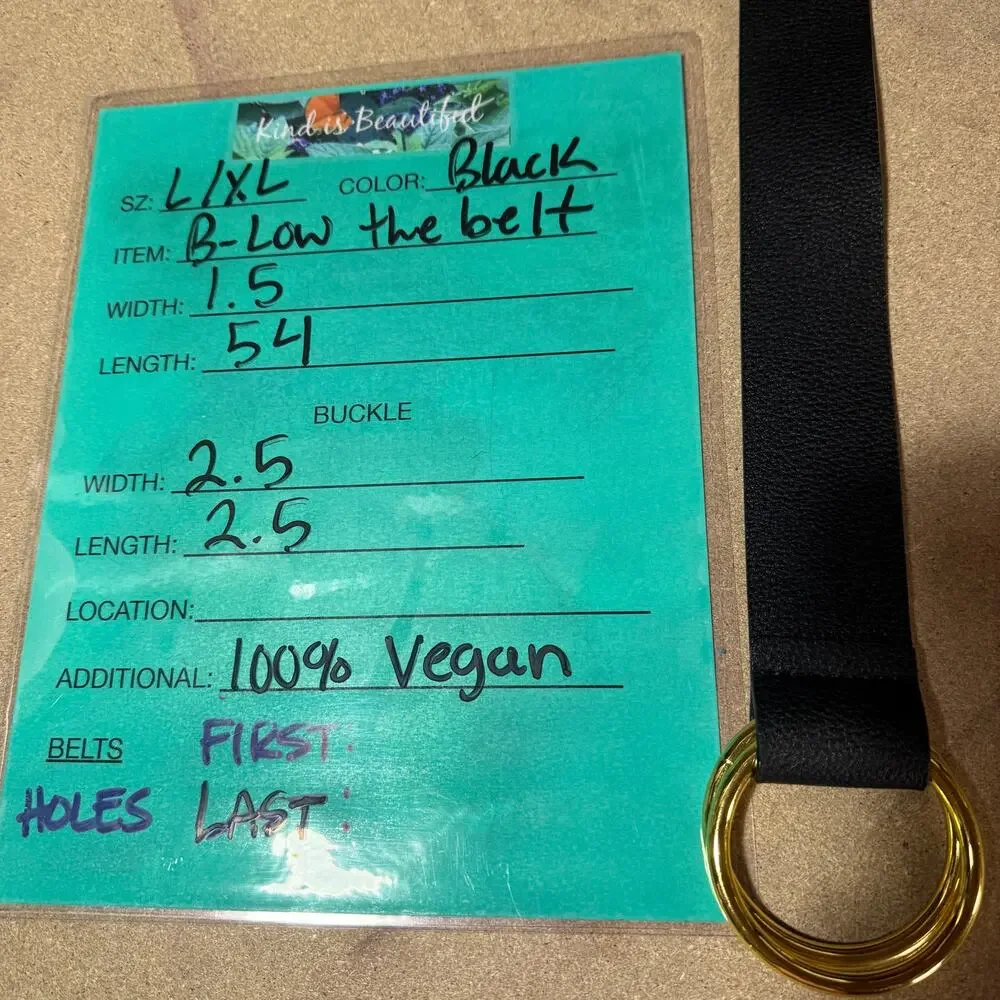 Kind is Beautiful
SZ: L/XL COLOR: Black
ITEM: B-Low the belt
WIDTH: 1.5
LENGTH: 54
BUCKLE
WIDTH: 2.5
LENGTH: 2.5
LOCATION:
ADDITIONAL: 100% Vegan
BELTS FIRST:
HOLES LAST: